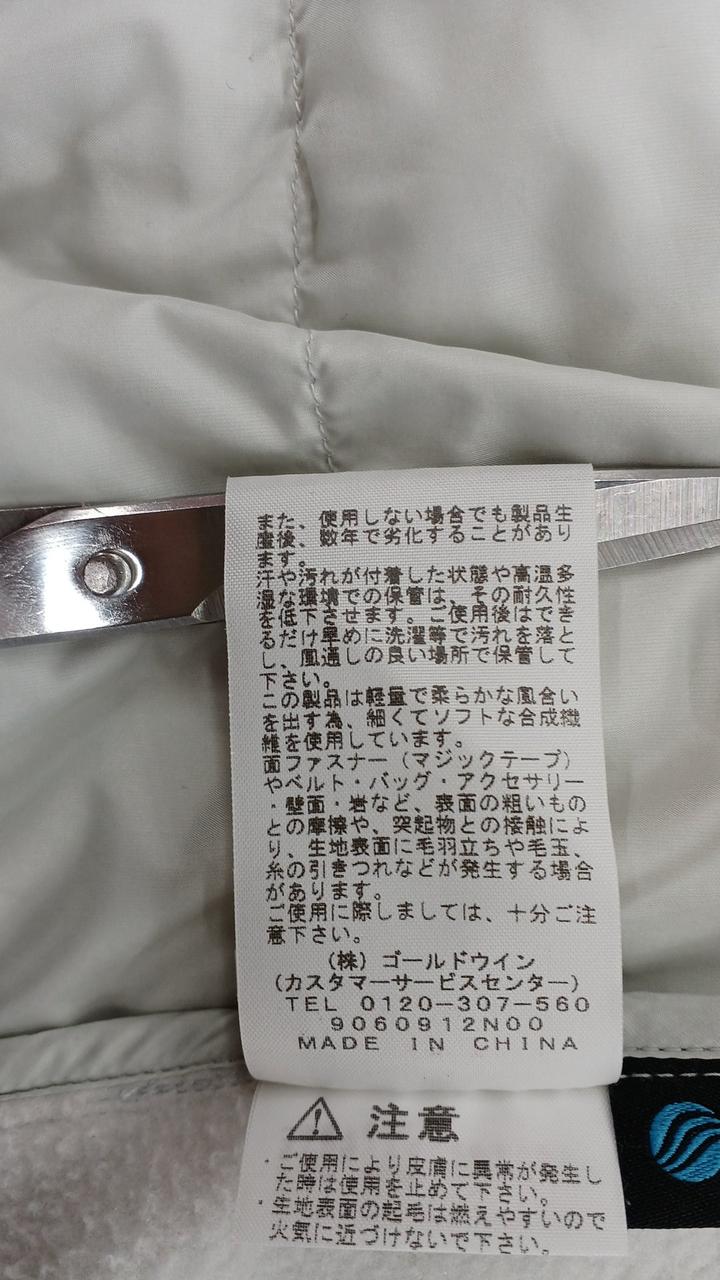 また、使用しない場合でも製品生
産後、数年で劣化することがあり
ます。
汗や汚れが付着した状態や高温多
湿な環境での保管は、その耐久性
を低下させます。ご使用後はでき
るだけ早めに洗濯等で汚れを落と
し、風通しの良い場所で保管して
下さい。
この製品は軽量で柔らかな風合い
を出す為、細くてソフトな合成繊
維を使用しています。
面ファスナー（マジックテープ）
やベルト・バッグ・アクセサリー
・壁面・岩など、表面の粗いもの
との摩擦や、突起物との接触によ
り、生地表面に毛羽立ちや毛玉、
糸の引きつれなどが発生する場合
があります。
ご使用に際しましては、十分ご注
意下さい。
（株）ゴールドウイン
（カスタマーサービスセンター）
TEL 0120-307-560
9060912N00
MADE IN CHINA
注意
・ご使用により皮膚に異常が発生し
た時は使用を止めて下さい。
・生地表面の起毛は燃えやすいので
火気に近づけないで下さい。